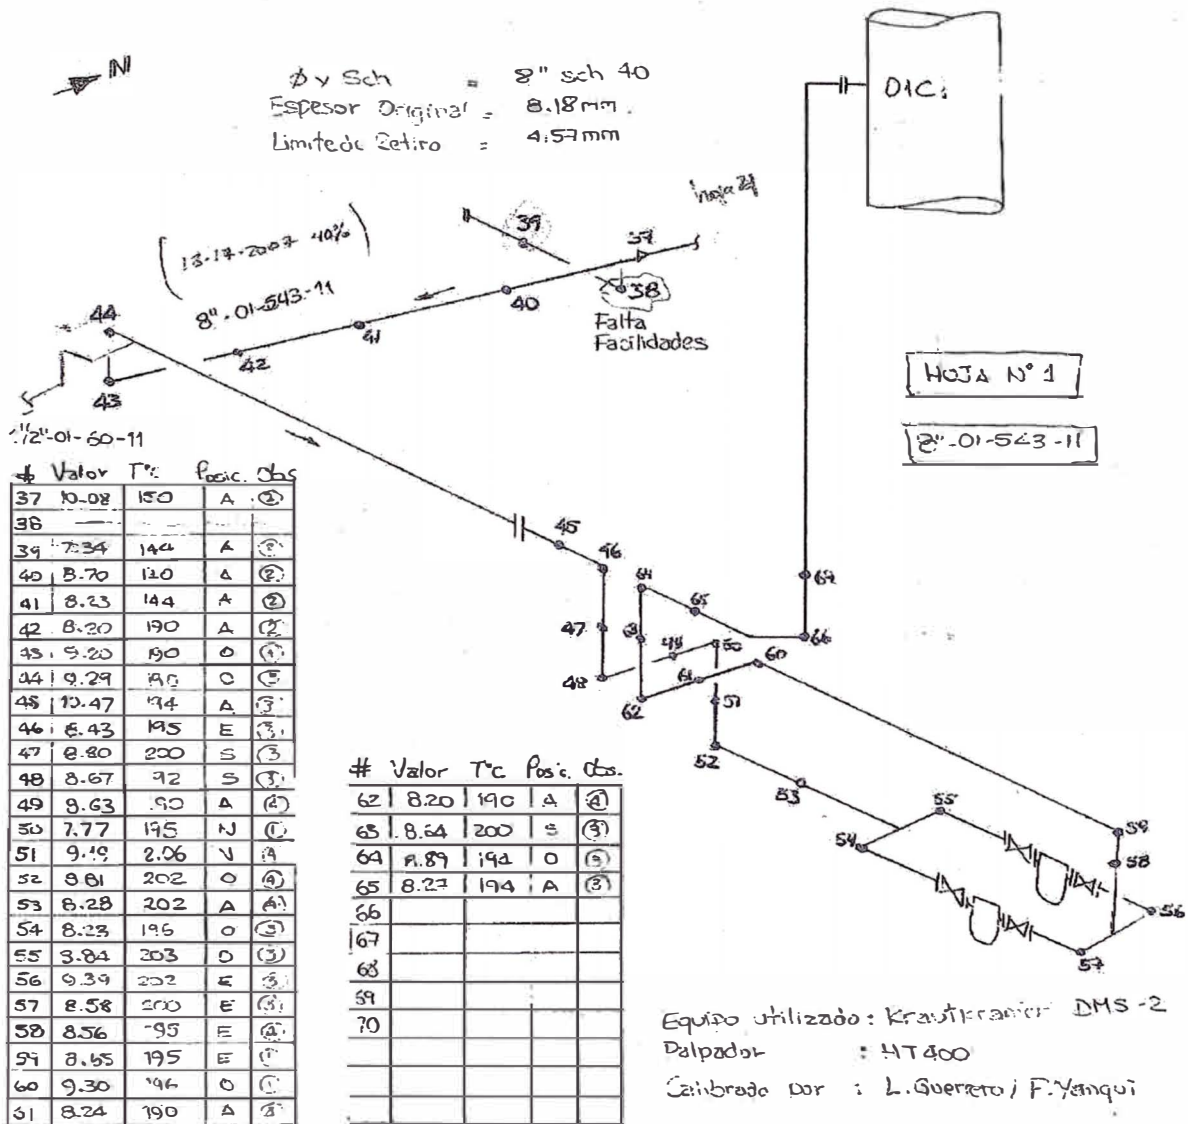 N
Ø y Sch = 8" sch 40
Espesor Original = 8.18mm.
Limite de Retiro = 4.57mm
D1C.
39
37
38
40
Falta
Facilidades
8"-01-543-11
41
42
44
43
HOJA N° 1
8"-01-543-11
1/2"-01-60-11
45
46
47
48
49
50
51
52
53
54
55
56
57
58
59
60
61
62
63
64
65
66
67
# Valor T°C Posic. Obs
37 10.08 150 A 2
38
39 7.34 144 A
40 8.70 120 A 2
41 8.23 144 A 2
42 8.20 190 A 2
43 9.20 190 O 1
44 9.29 190 O
45 10.47 194 A 3
46 8.43 195 E 3
47 8.80 200 S 3
48 8.67 92 S 3
49 8.63 .90 A
50 7.77 195 N 1
51 9.19 2.06 4
52 8.81 202 O 4
53 8.28 202 A 4
54 8.23 195 O 3
55 203 3
56 9.39 202 E 3
57 8.58 200 E
58 8.56 95 E
59 8.65 195 E 1
60 9.30 196 O 1
61 8.24 190 A
# Valor T°C Posic. Obs.
62 8.20 190 A 4
63 8.64 200 S 3
64 8.89 194 O
65 8.27 194 A 3
66
67
68
69
70
Equipo utilizado: Krautkramer DMS-2
Palpador : HT400
Calibrado por : L. Guerrero / F. Yanqui